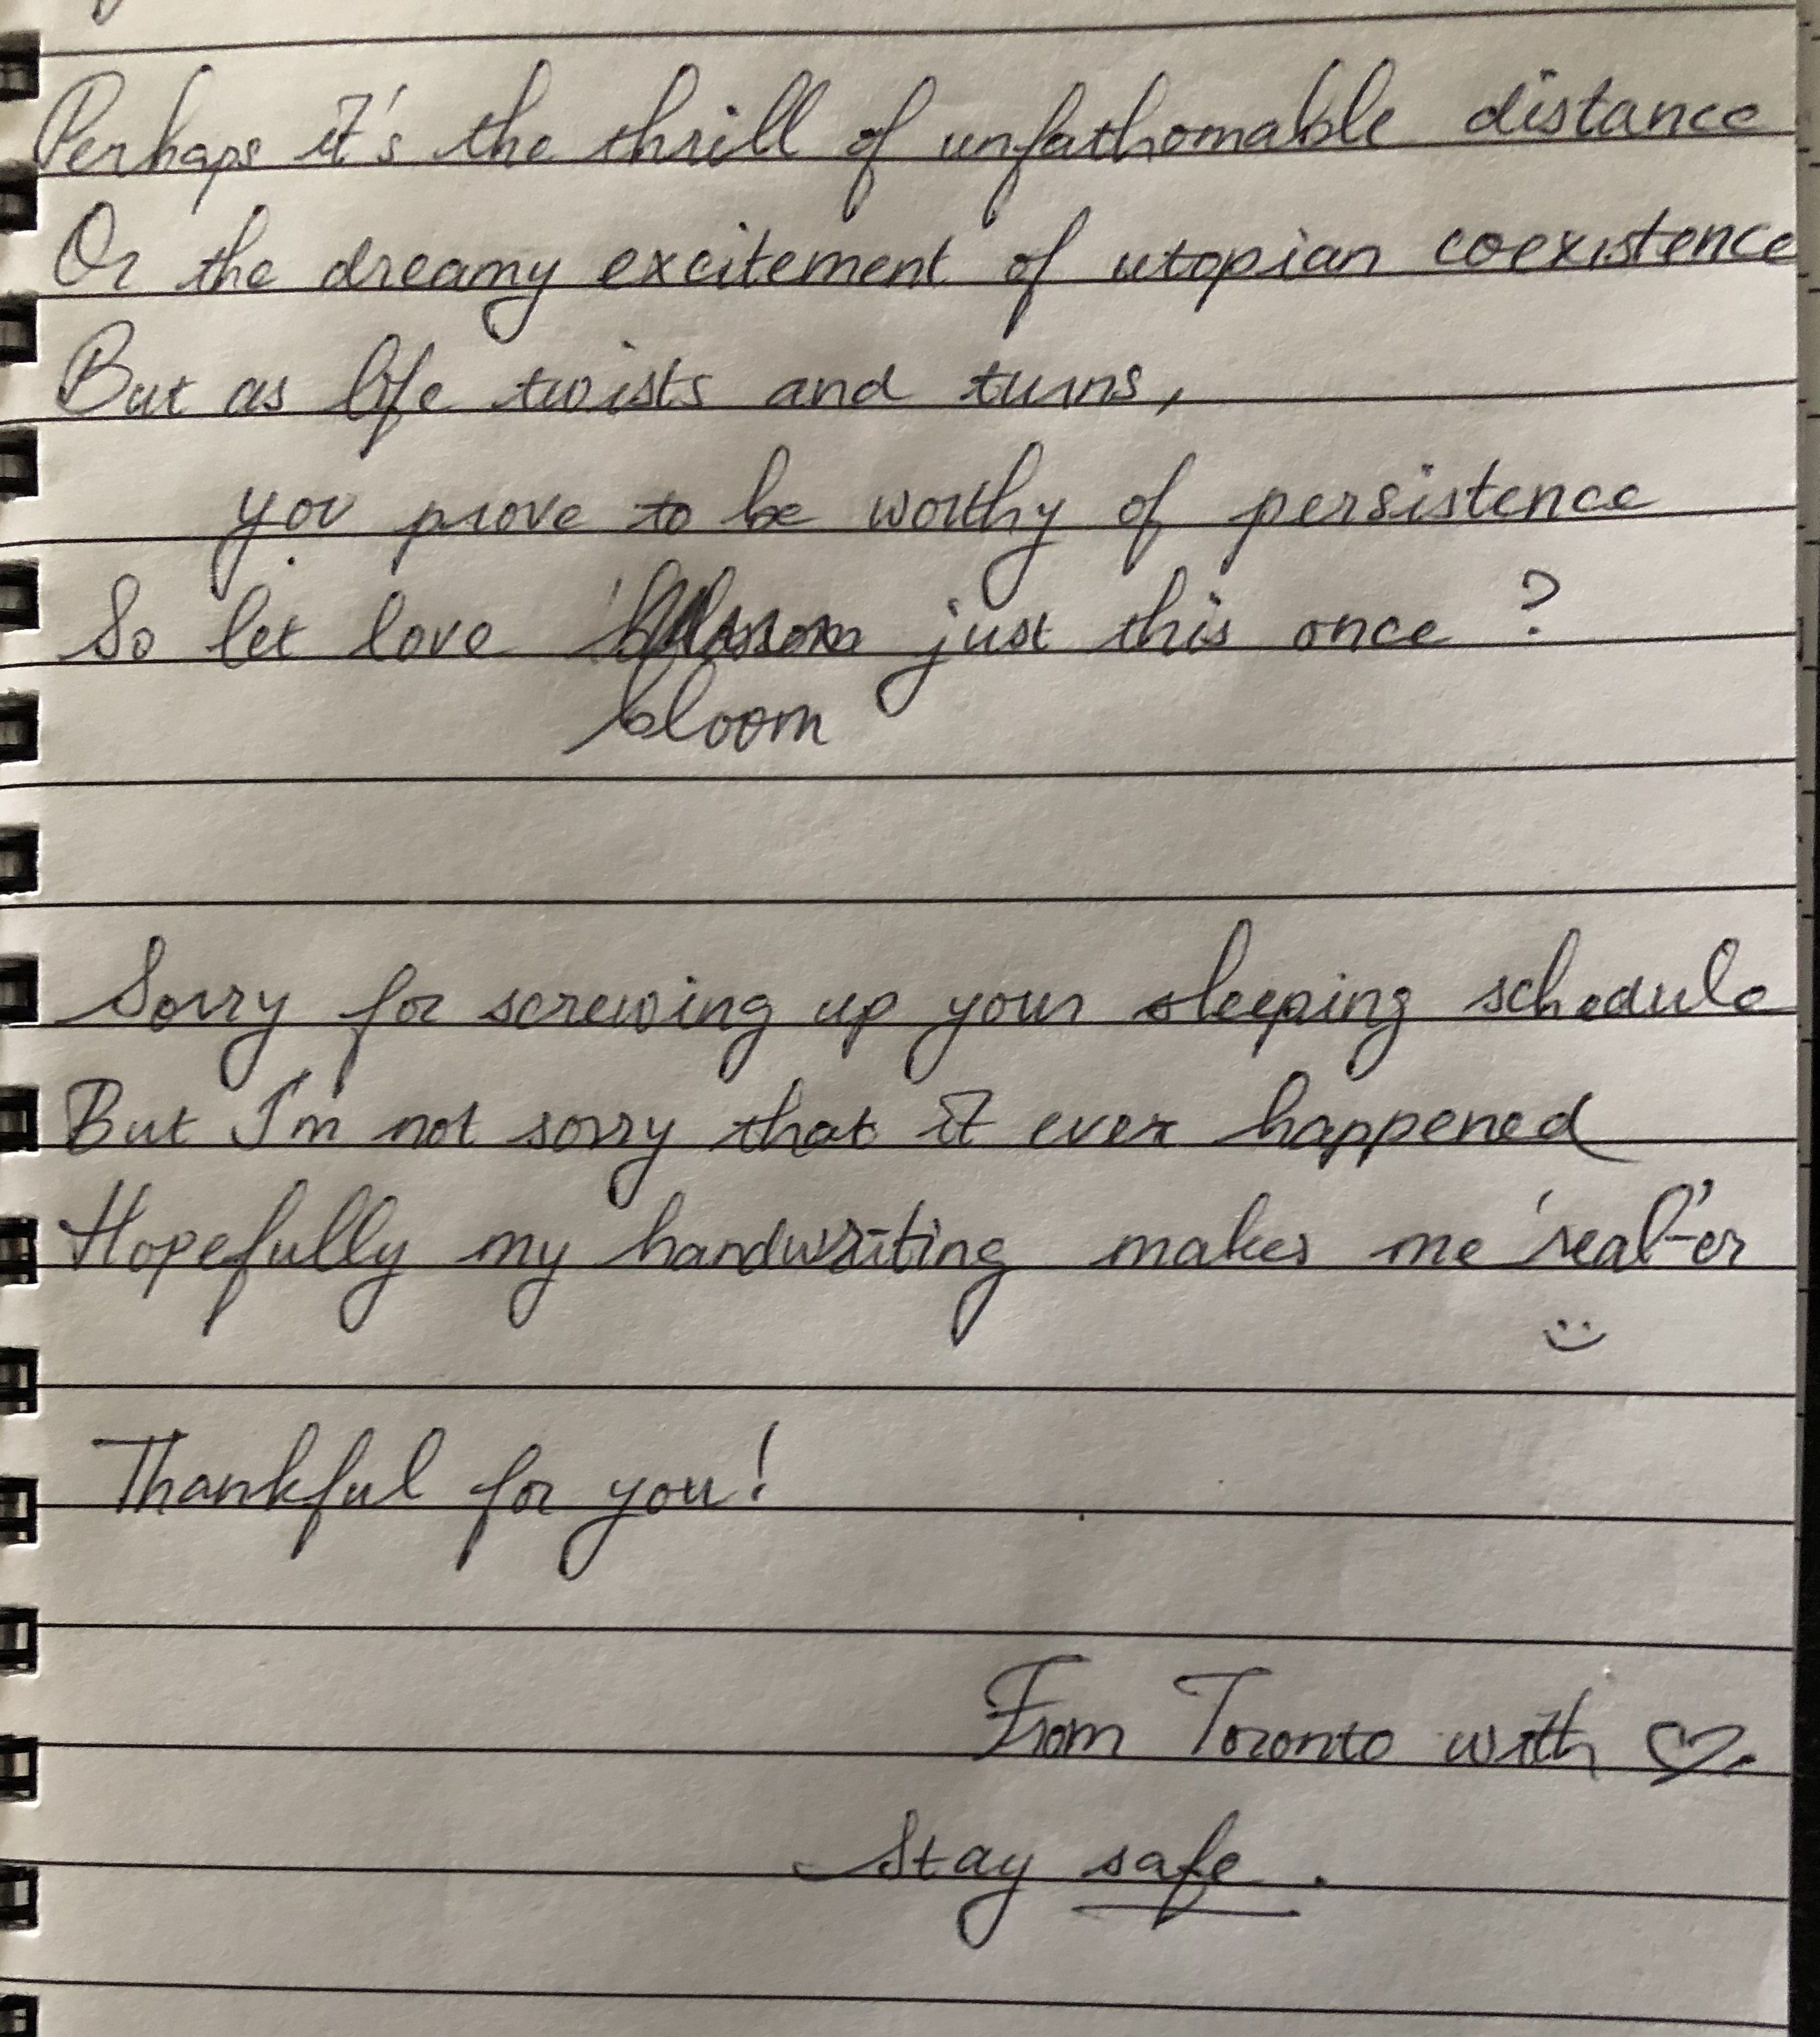 Perhaps it's the thrill of unfathomable distance
Or the dreamy excitement of utopian coexistence
But as life twists and turns,
you prove to be worthy of persistence
So let love just this once ?
bloom
Sorry for screwing up your sleeping schedule
But I'm not sorry that it ever happened
Hopefully my handwriting makes me 'real'-er
:)
Thankful for you!
From Toronto with ♡.
Stay safe.